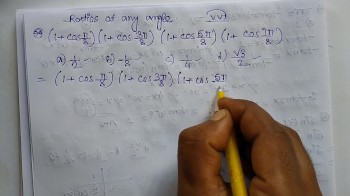 Ratios of any angle (VVI)
(1+cos π/8) (1+cos 3π/8) (1+cos 5π/8) (1+cos 7π/8)
a) 1/2 b) -1/8 c) 1/4 d) √3/2
= (1+cos π/8) (1+cos 3π/8) (1+cos 5π